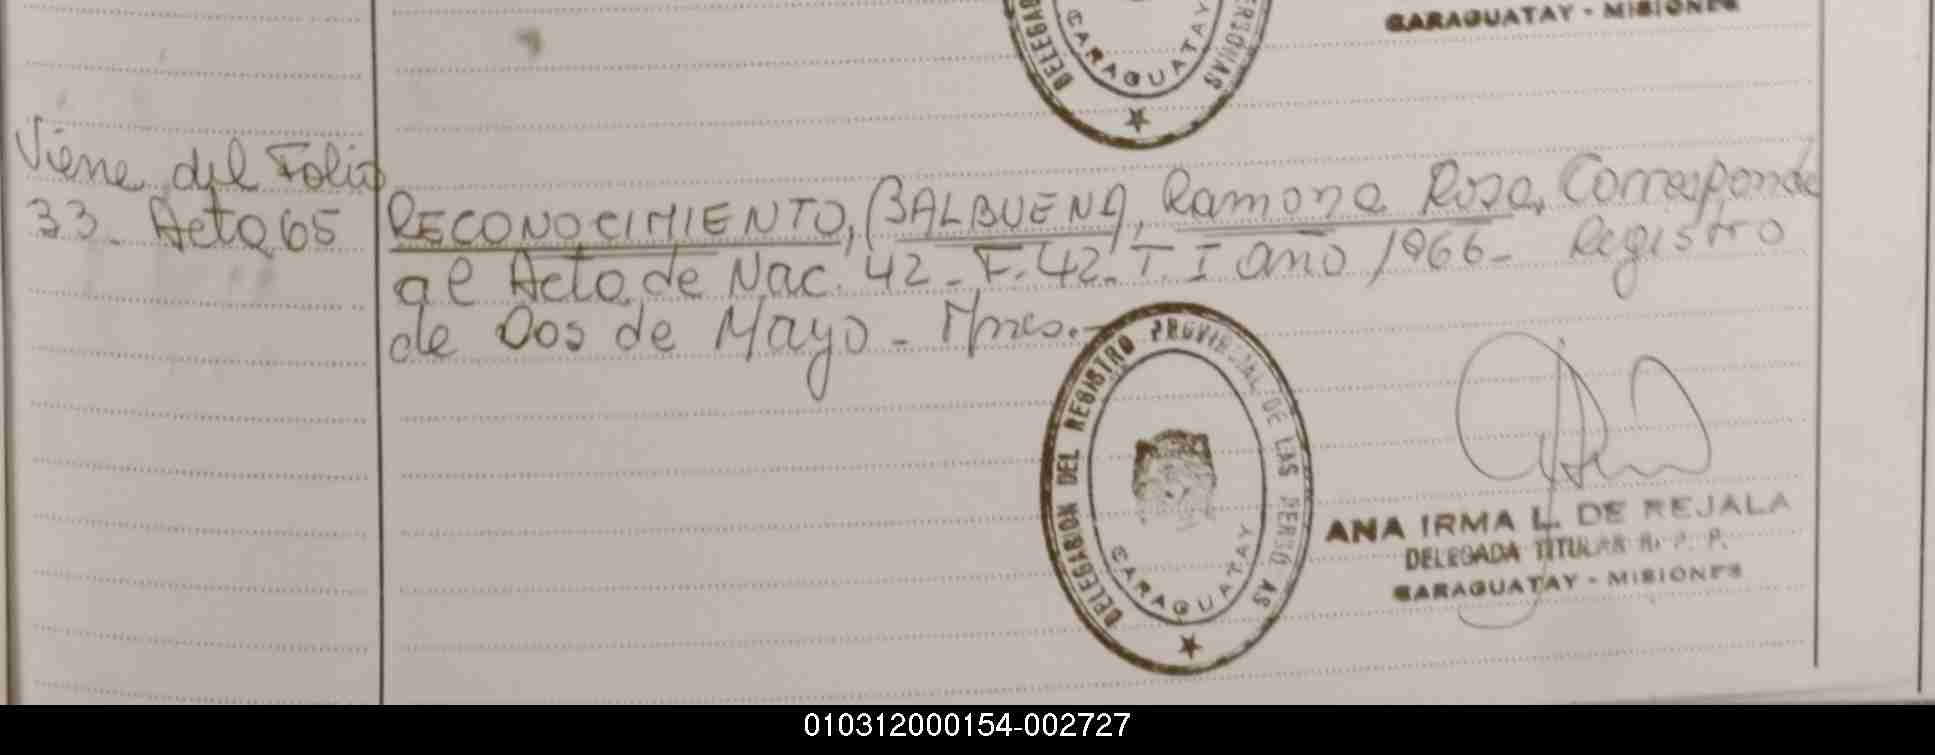 CARAGUATAY - MISIONES
CARAGUATAY
Viene del Folio
33. Acta 65
RECONOCIMIENTO, BALBUENA, Ramona Rosa, Corresponde
al Acta de Nac. 42 - F. 42 - T. I año 1966 - Registro
de Dos de Mayo - Mnes.-
DELEGACION DEL REGISTRO PROVINCIAL DE LAS PERSONAS
CARAGUATAY
ANA IRMA L. DE REJALA
DELEGADA TITULAR R. P. P.
CARAGUATAY - MISIONES
010312000154-002727